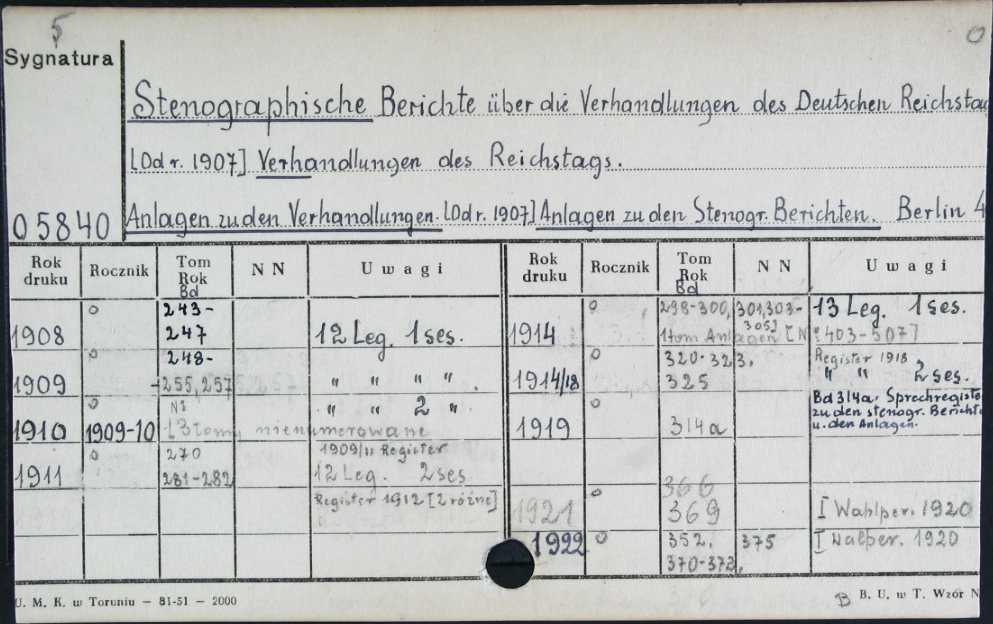 5
0
Sygnatura
Stenographische Berichte über die Verhandlungen des Deutschen Reichstag
[Od r. 1907] Verhandlungen des Reichstags.
05840
Anlagen zu den Verhandlungen. [Od r. 1907] Anlagen zu den Stenogr. Berichten. Berlin 4
Rok druku Rocznik Tom Rok Bd NN Uwagi Rok druku Rocznik Tom Rok Bd NN Uwagi
1908 243-247 12 Leg. 1 ses.
1909 248-255, 257 " " " " .
1910 1909-10 13 tomy nienumerowane " " 2 " .
1911 270 281-282 1909/11 Register 12 Leg. 2 ses
Register 1912 [2 różne]
1914 298-300, 301, 303-305 13 Leg. 1 ses.
1 tom Anlagen [N 403-507]
1914/18 320-323. 325 Register 1918 " " 2 ses.
1919 314a Bd 314a. Sprechregiste
zu den stenogr. Bericht
u. den Anlagen.
1921 366 369 I Wahlper. 1920
1922 352. 370-373, 375 I Walper. 1920
U. M. K. w Toruniu — 81-51 — 2000
B B. U. w T. Wzór N